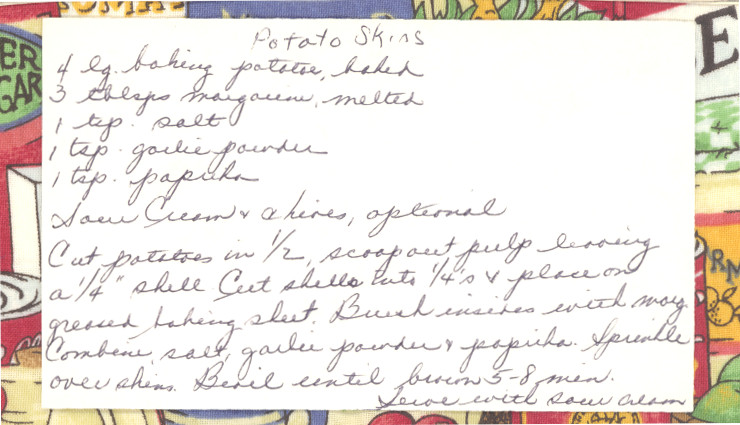 Potato Skins
4 lg. baking potatoe, baked
3 tblsps margarine, melted
1 tsp. salt
1 tsp. garlic powder
1 tsp. paprika
Sour Cream & chives, optional
Cut potatoes in 1/2, scoop out pulp leaving
a 1/4" shell Cut shells into 1/4's & place on
greased baking sheet. Brush insides with marg.
Combine, salt, garlic powder & paprika. Sprinkle
over skins. Broil until brown 5-8 min.
Serve with sour cream
ER
GAR
E
RM